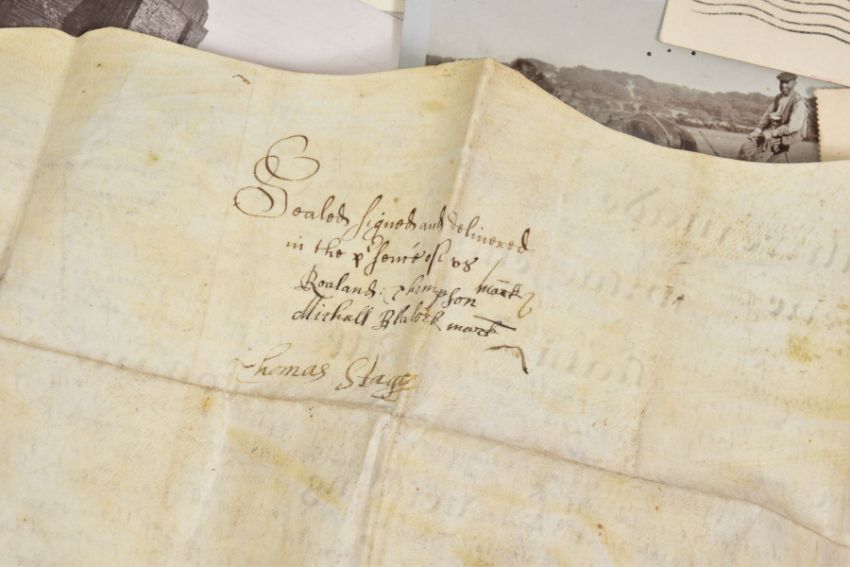 Sealed signed and delivered
in the p'sence of us
Rowland: Thompson mark
Michall Blalock mark
Thomas Stagg